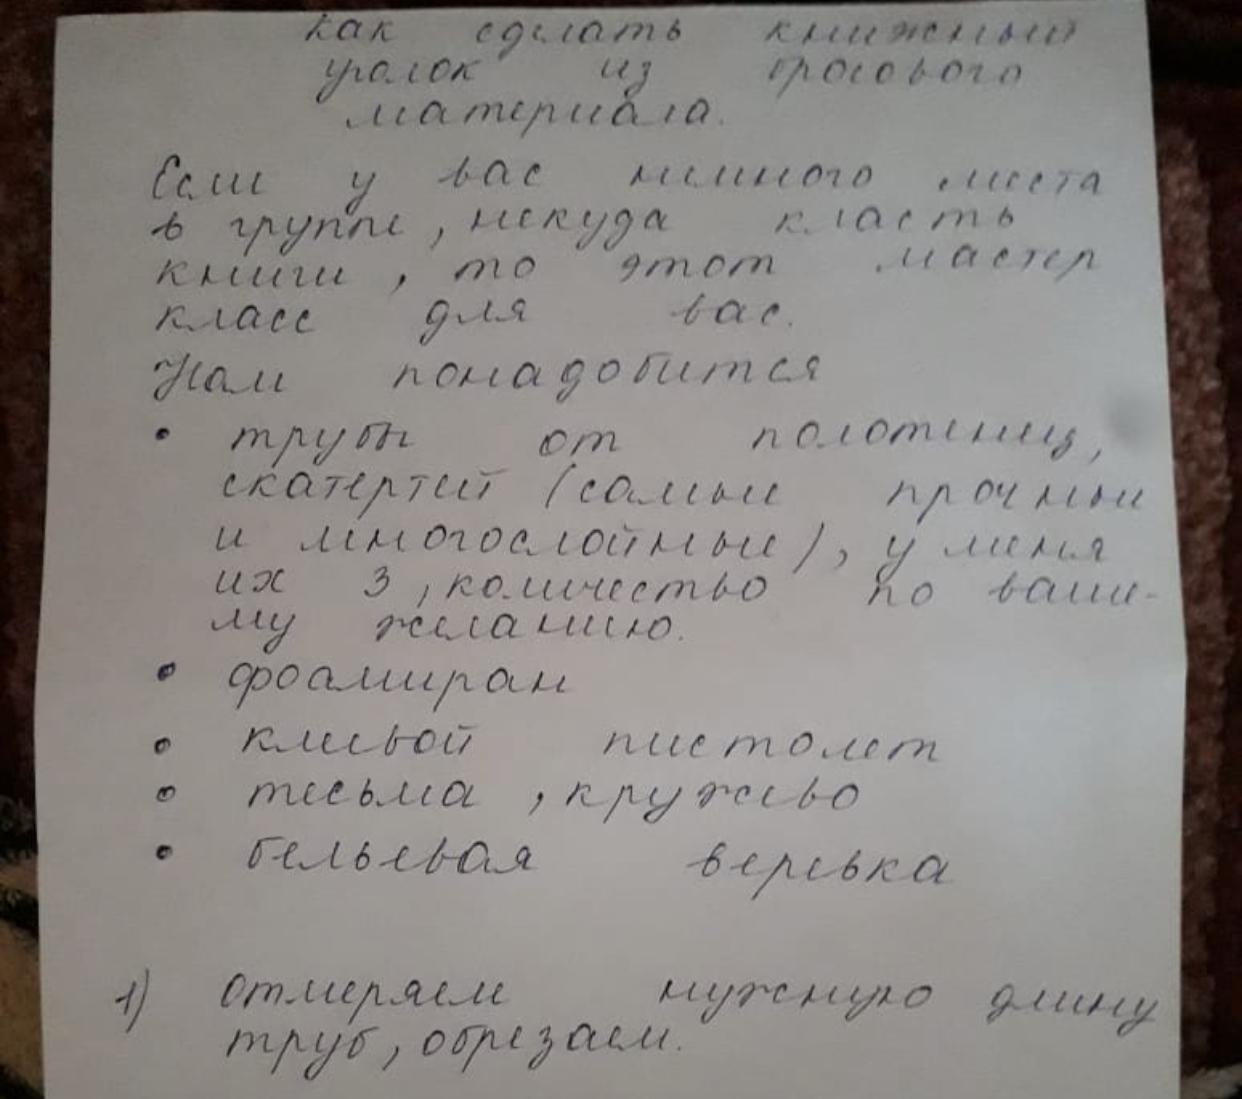 Как сделать книжный
уголок из бросового
материала.
Если у вас немного места
в группе, некуда класть
книги, то этот мастер
класс для вас.
Нам понадобится
• трубы от полотенец,
скатертей (самые прочные
и многослойные), у меня
их 3, количество по ваше-
му желанию.
• фоамиран
• клеевой пистолет
• тесьма, кружево
• бельевая веревка
1) отмеряем нужную длину
труб, обрезаем.